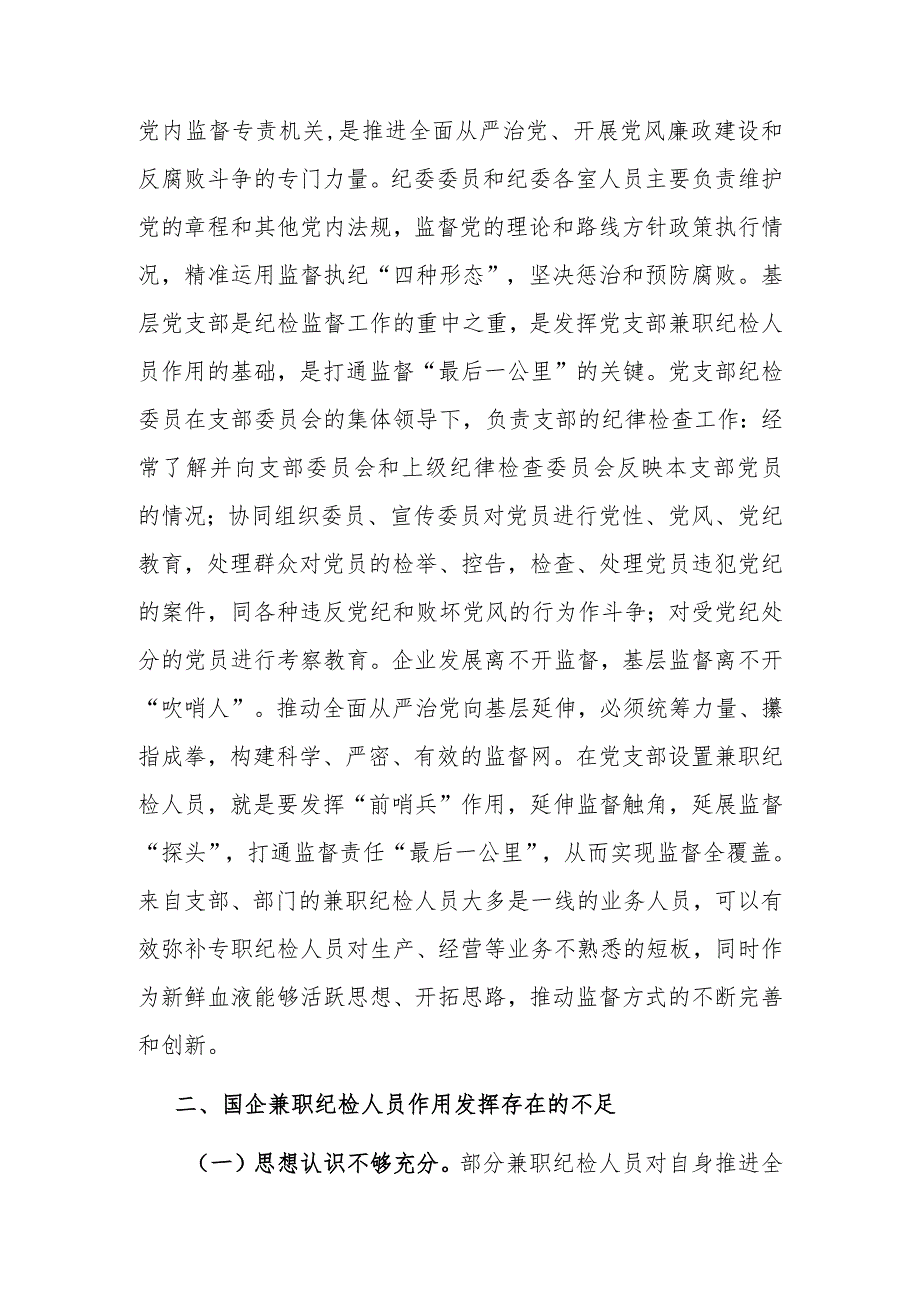 党内监督专责机关,是推进全面从严治党、开展党风廉政建设和
反腐败斗争的专门力量。纪委委员和纪委各室人员主要负责维护
党的章程和其他党内法规，监督党的理论和路线方针政策执行情
况，精准运用监督执纪“四种形态”，坚决惩治和预防腐败。基
层党支部是纪检监督工作的重中之重，是发挥党支部兼职纪检人
员作用的基础，是打通监督“最后一公里”的关键。党支部纪检
委员在支部委员会的集体领导下，负责支部的纪律检查工作：经
常了解并向支部委员会和上级纪律检查委员会反映本支部党员
的情况；协同组织委员、宣传委员对党员进行党性、党风、党纪
教育，处理群众对党员的检举、控告，检查、处理党员违犯党纪
的案件，同各种违反党纪和败坏党风的行为作斗争；对受党纪处
分的党员进行考察教育。企业发展离不开监督，基层监督离不开
“吹哨人”。推动全面从严治党向基层延伸，必须统筹力量、攥
指成拳，构建科学、严密、有效的监督网。在党支部设置兼职纪
检人员，就是要发挥“前哨兵”作用，延伸监督触角，延展监督
“探头”，打通监督责任“最后一公里”，从而实现监督全覆盖。
来自支部、部门的兼职纪检人员大多是一线的业务人员，可以有
效弥补专职纪检人员对生产、经营等业务不熟悉的短板，同时作
为新鲜血液能够活跃思想、开拓思路，推动监督方式的不断完善
和创新。
二、国企兼职纪检人员作用发挥存在的不足
（一）思想认识不够充分。部分兼职纪检人员对自身推进全